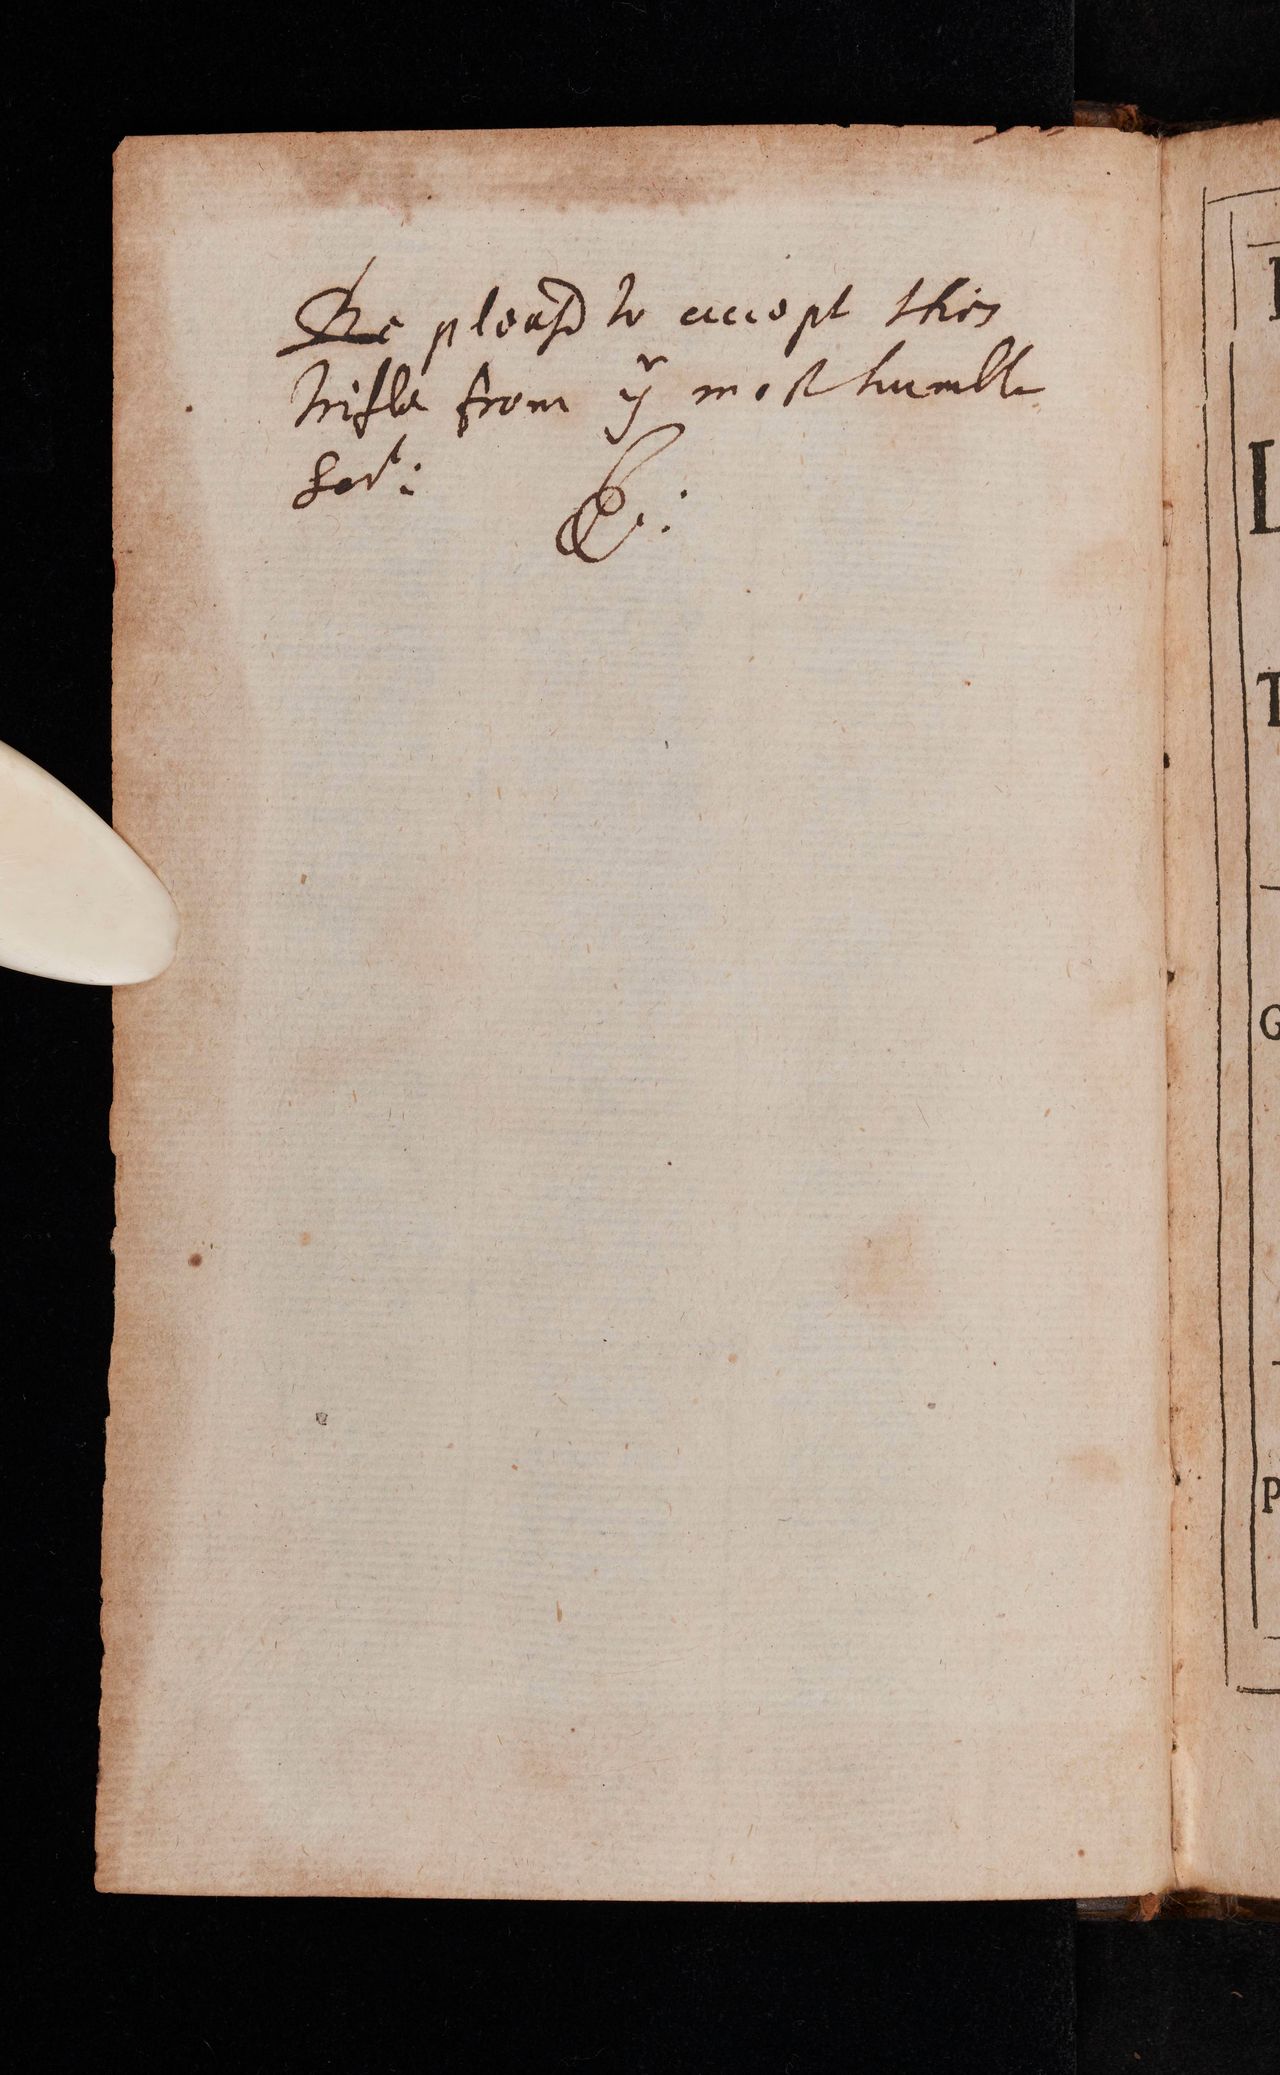 Be pleas'd to accept this
trifle from yr most humble
Servt: